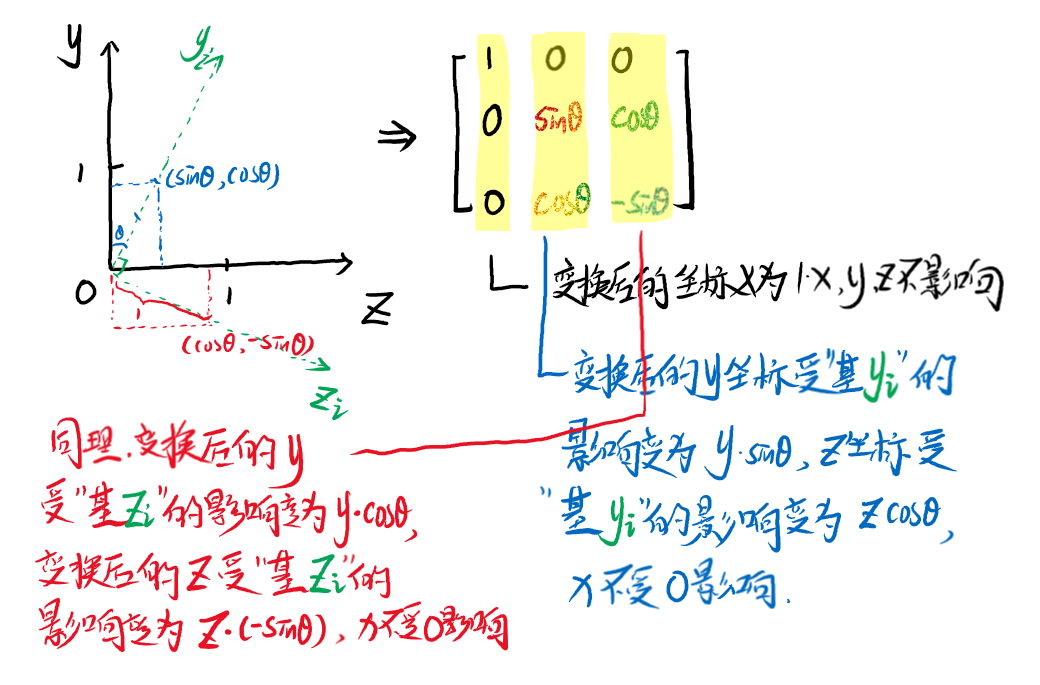 y
y_i
1
(sinθ, cosθ)
θ
0
1
Z
1
(cosθ, -sinθ)
Z_i
⇒
1 0 0
0 sinθ cosθ
0 cosθ -sinθ
变换后的坐标x为1·x, y, z不影响
变换后的y坐标受"基y_i"的
影响变为y·sinθ, z坐标受
"基y_i"的影响变为zcosθ,
x不受0影响.
同理.变换后的y
受"基Z_i"的影响变为y·cosθ,
变换后的Z受"基Z_i"的
影响变为Z·(-sinθ), x不受0影响